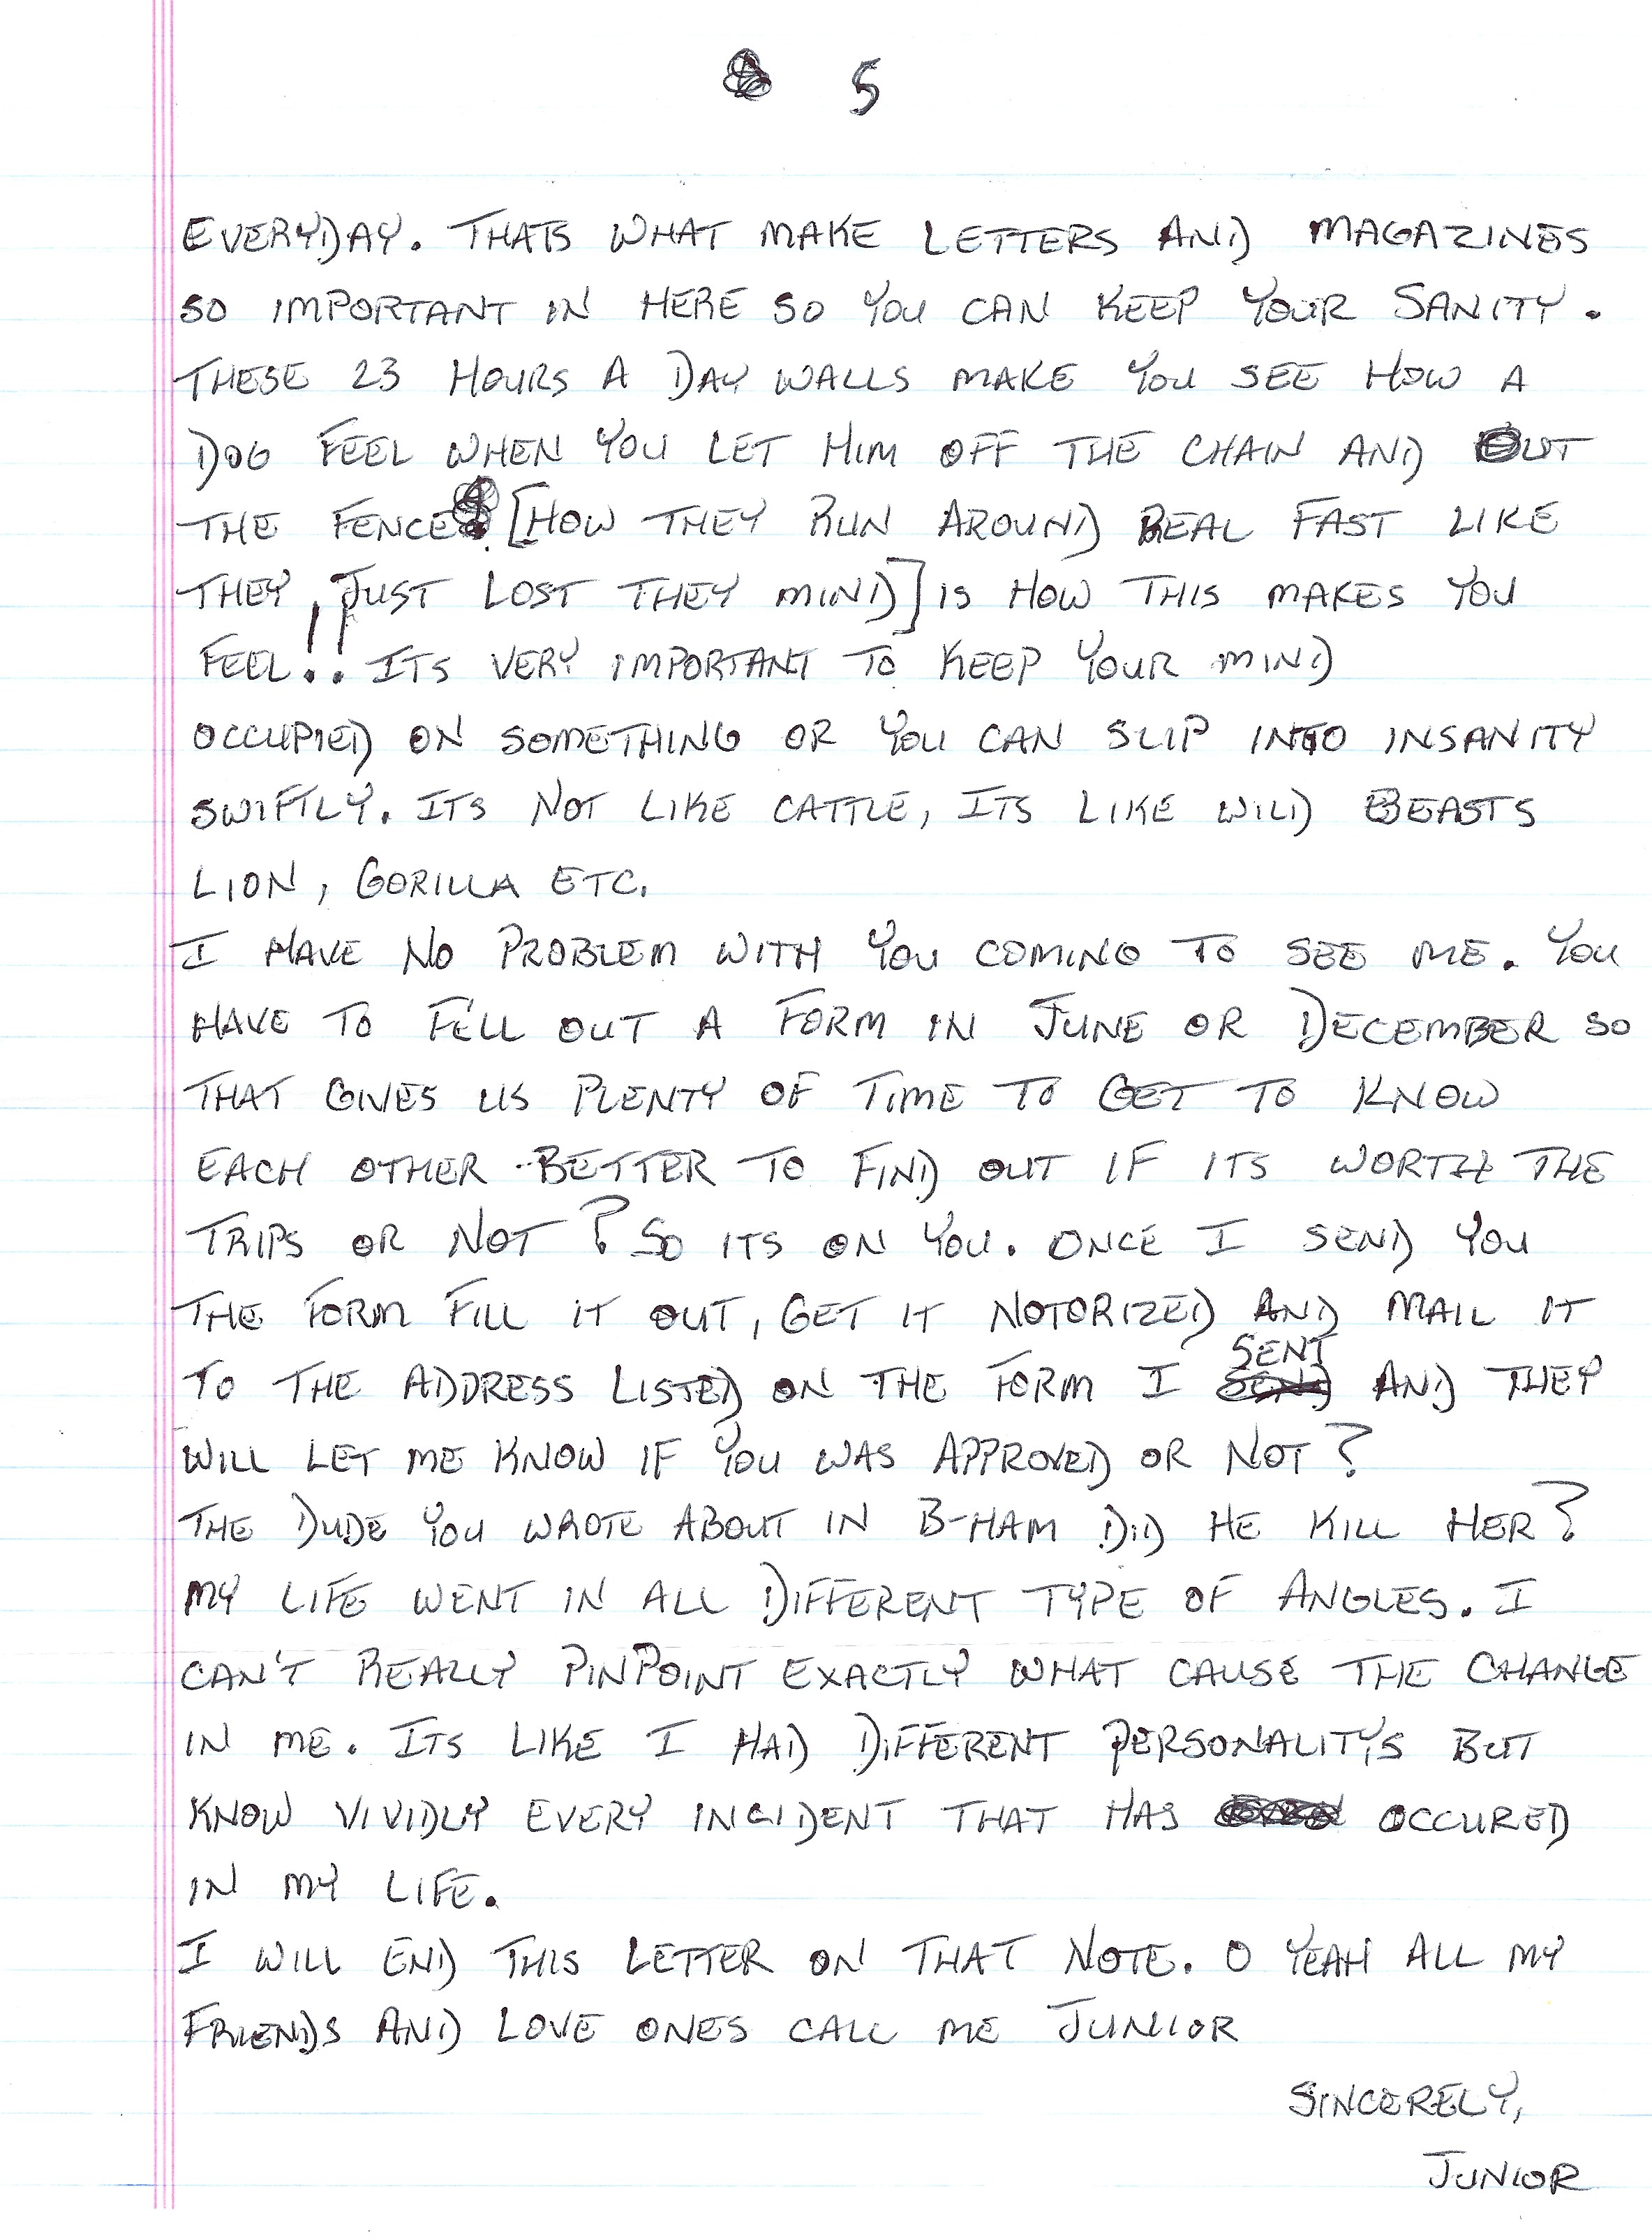 5
EVERYDAY. THATS WHAT MAKE LETTERS AND MAGAZINES
SO IMPORTANT IN HERE SO YOU CAN KEEP YOUR SANITY.
THESE 23 HOURS A DAY WALLS MAKE YOU SEE HOW A
DOG FEEL WHEN YOU LET HIM OFF THE CHAIN AND OUT
THE FENCE. [HOW THEY RUN AROUND REAL FAST LIKE
THEY JUST LOST THEY MIND] IS HOW THIS MAKES YOU
FEEL!! ITS VERY IMPORTANT TO KEEP YOUR MIND
OCCUPIED ON SOMETHING OR YOU CAN SLIP INTO INSANITY
SWIFTLY. ITS NOT LIKE CATTLE, ITS LIKE WILD BEASTS
LION, GORILLA ETC.
I HAVE NO PROBLEM WITH YOU COMING TO SEE ME. YOU
HAVE TO FILL OUT A FORM IN JUNE OR DECEMBER SO
THAT GIVES US PLENTY OF TIME TO GET TO KNOW
EACH OTHER BETTER TO FIND OUT IF ITS WORTH THE
TRIPS OR NOT? SO ITS ON YOU. ONCE I SEND YOU
THE FORM FILL IT OUT, GET IT NOTORIZED AND MAIL IT
TO THE ADDRESS LISTED ON THE FORM I SENT AND THEY
WILL LET ME KNOW IF YOU WAS APPROVED OR NOT?
THE DUDE YOU WROTE ABOUT IN B-HAM DID HE KILL HER?
MY LIFE WENT IN ALL DIFFERENT TYPE OF ANGLES. I
CAN'T REALLY PINPOINT EXACTLY WHAT CAUSE THE CHANGE
IN ME. ITS LIKE I HAD DIFFERENT PERSONALITY'S BUT
KNOW VIVIDLY EVERY INCIDENT THAT HAS OCCURED
IN MY LIFE.
I WILL END THIS LETTER ON THAT NOTE. O YEAH ALL MY
FRIENDS AND LOVE ONES CALL ME JUNIOR
SINCERELY,
JUNIOR